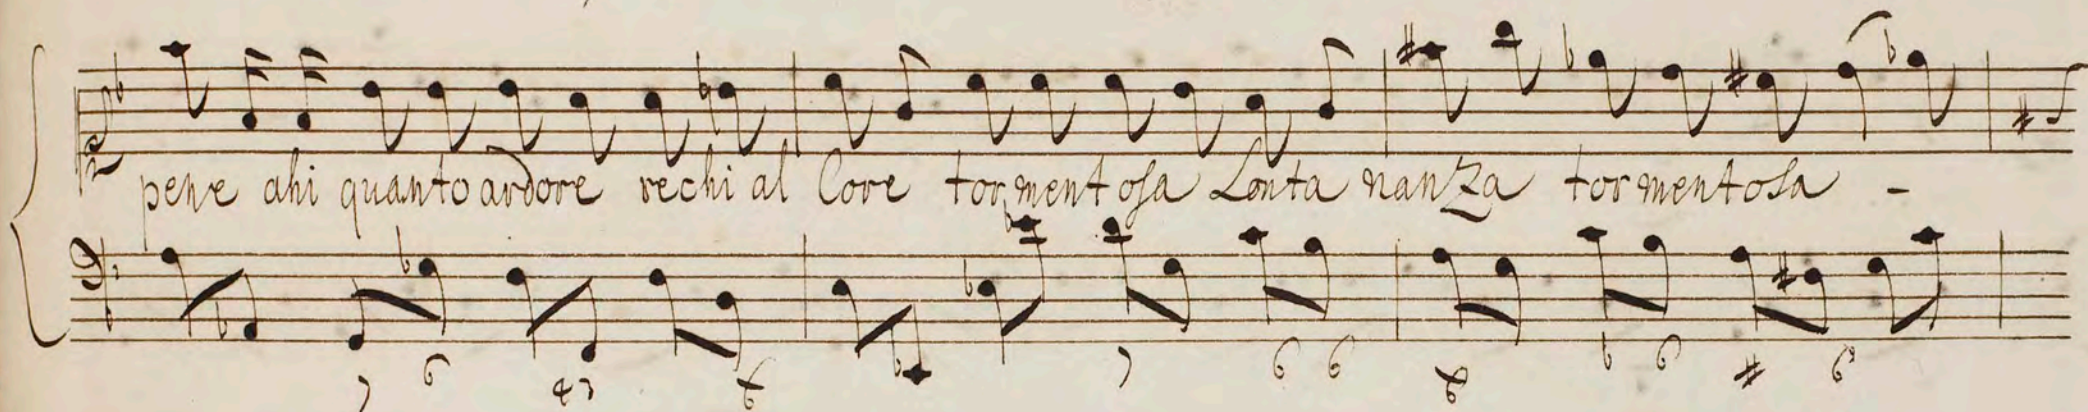 pene ahi quanto ardore rechi al Core tormentosa Lontananza tormentosa -
7 6 43 6 7 6 6 8 b 6 # 6